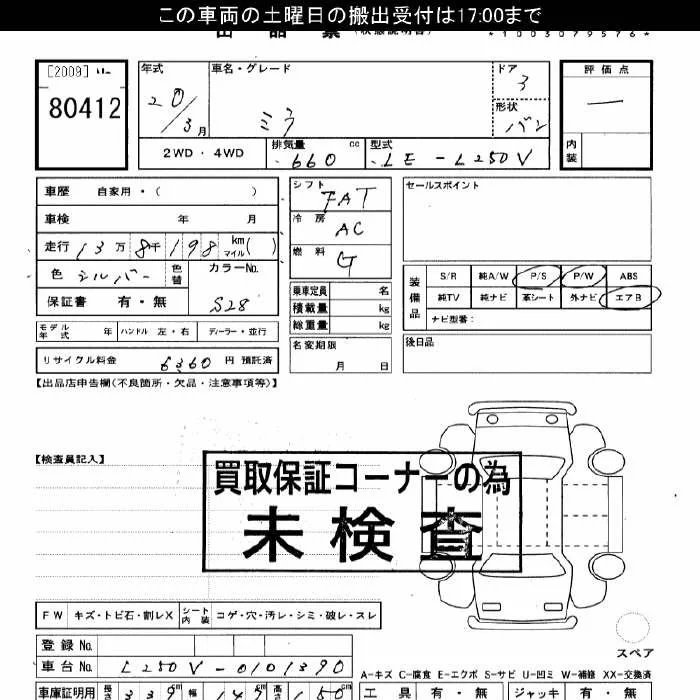 この車両の土曜日の搬出受付は17:00まで
*1003079576*
[2009]
80412
年式
20/3月
車名・グレード
ミラ
ドア
3
形状
バン
評価点
—
内装
2WD・4WD
排気量 660 cc
型式 LE-L250V
車歴 自家用・( )
車検 年 月
走行 13万8千198 km マイル( )
色 シルバー 色替
カラーNo. S28
保証書 有・無
モデル年式 年 ハンドル 左・右 ディーラー・並行
リサイクル料金 6360 円 預託済
シフト FAT
冷房 AC
燃料 G
乗車定員 名
積載量 kg
総重量 kg
名変期限 月 日
セールスポイント
装備品
S/R 純A/W P/S P/W ABS
純TV 純ナビ 革シート 外ナビ エアB
ナビ型番:
後日品
【出品店申告欄(不良箇所・欠品・注意事項等)】
【検査員記入】
買取保証コーナーの為
未検査
FW キズ・トビ石・割レX シート内装 コゲ・穴・汚レ・シミ・破レ・スレ
スペア
登録No.
車台No. L250V-0101390
A-キズ C-腐食 E-エクボ S-サビ U-凹ミ W-補修 XX-交換済
車庫証明用 長さ 339cm 幅 147cm 高さ 150cm
工具 有・無 ジャッキ 有・無